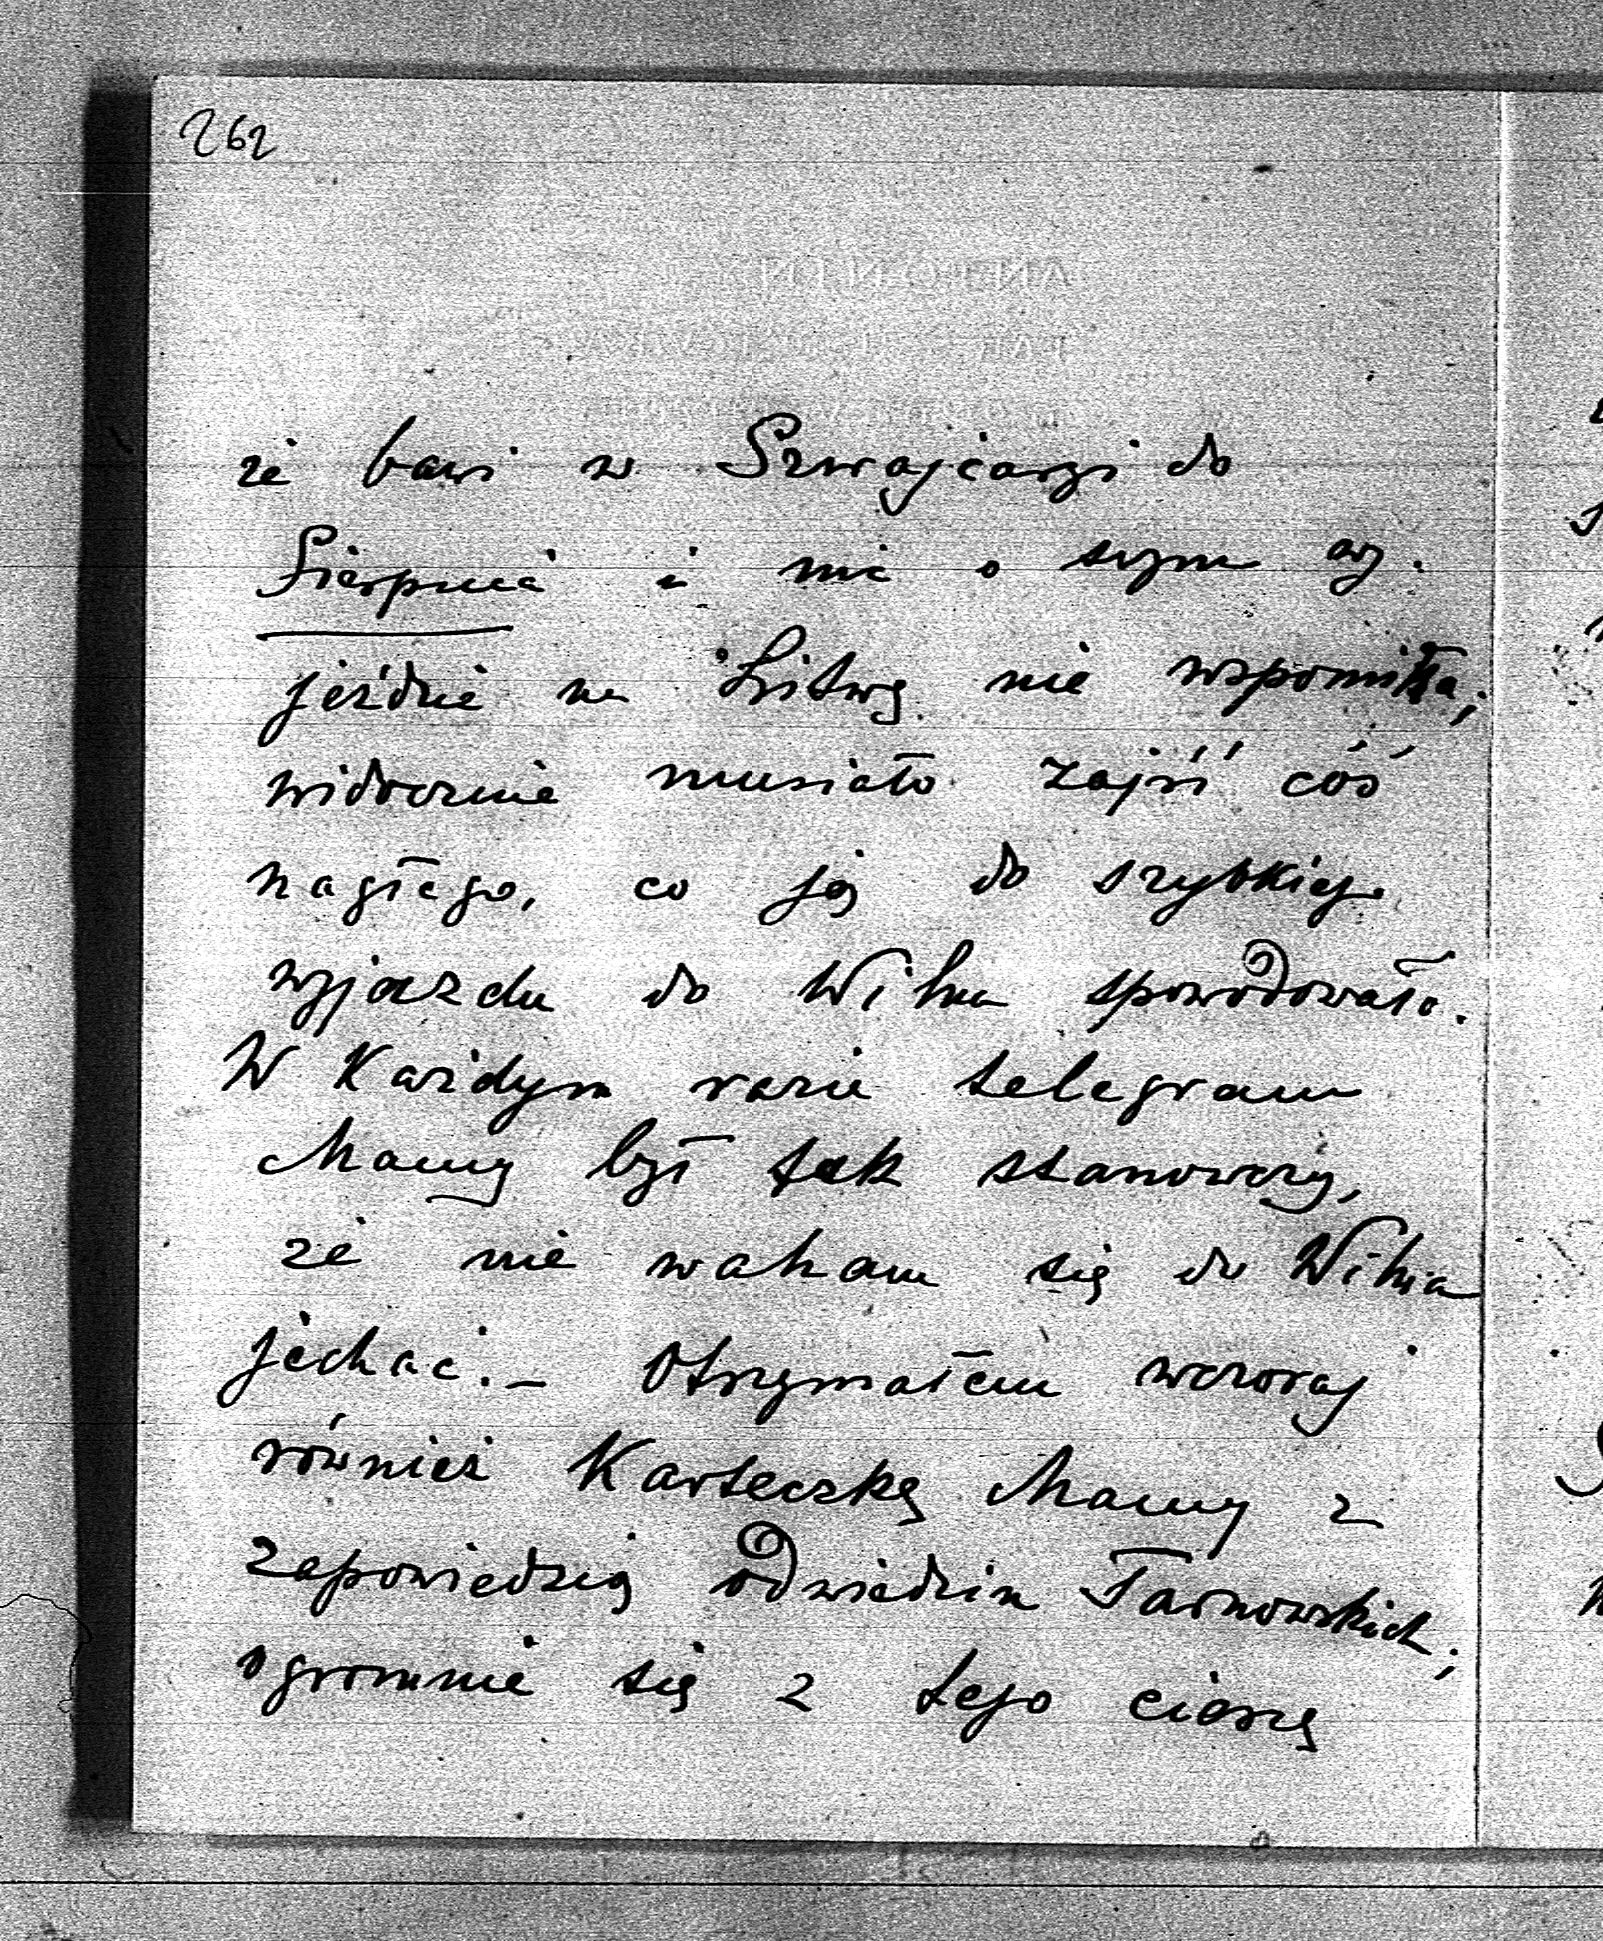 262
że bawi w Szwajcarji do
Sierpnia i nic o swym wy-
jeździe na Litwę nie wspomina;
widocznie musiało zajść coś
nagłego, co ją do szybkiego
wyjazdu do Wilna spowodowało.
W Każdym razie telegram
Mamy był tak stanowczy,
że nie waham się do Wilna
jechać. — Otrzymałem wczoraj
również Karteczkę Mamy z
zapowiedzią odwiedzin Tarnowskich;
ogromnie się z tego cieszę